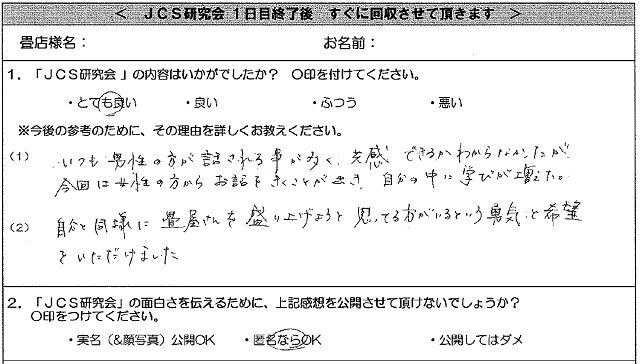 ＜ JCS研究会 1日目終了後 すぐに回収させて頂きます ＞
畳店様名： お名前：
1．「JCS研究会」の内容はいかがでしたか？ ○印を付けてください。
・とても良い ・良い ・ふつう ・悪い
※今後の参考のために、その理由を詳しくお教えください。
(1) いつも男性の方が話される事が多く、共感できるかわからなかったが
今回は女性の方からお話をきくことが出き、自分の中に学びが増えた。
(2) 自分と同様に畳屋さんを盛り上げようと思ってる方がいるという勇気と希望
をいただけました
2．「JCS研究会」の面白さを伝えるために、上記感想を公開させて頂けないでしょうか？
○印をつけてください。
・実名（&顔写真）公開OK ・匿名ならOK ・公開してはダメ